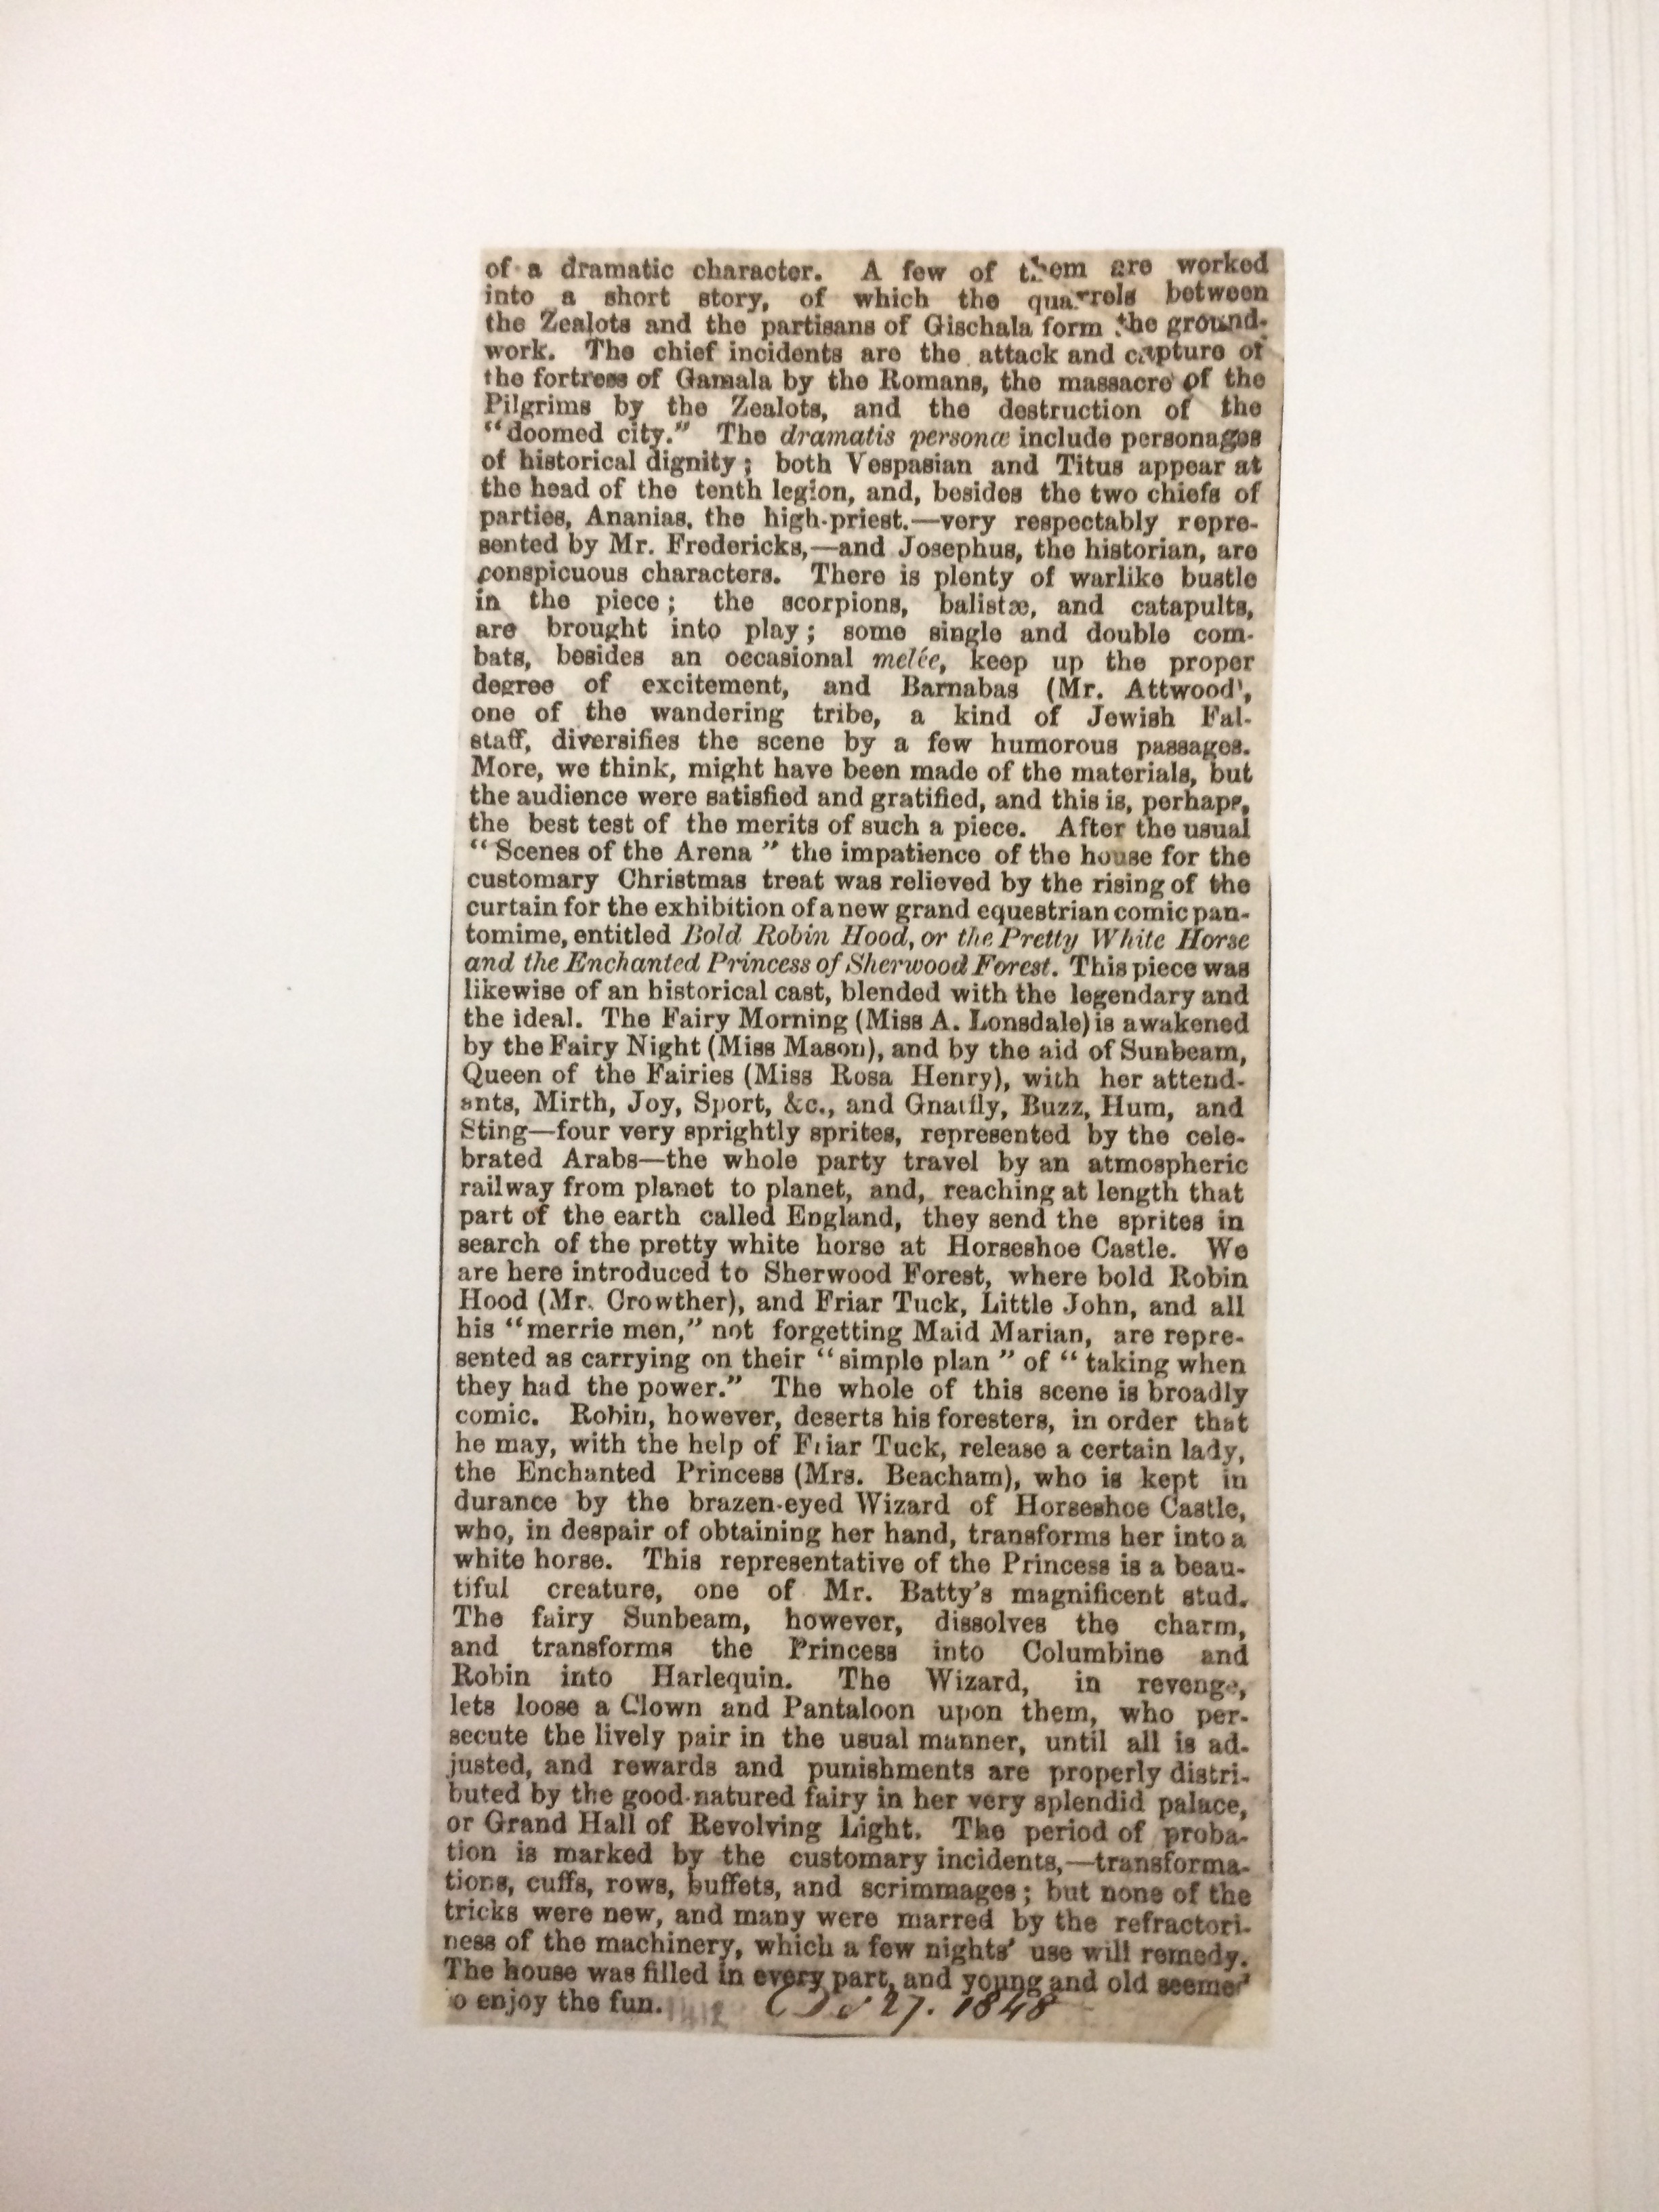 of a dramatic character. A few of them are worked
into a short story, of which the quarrels between
the Zealots and the partisans of Gischala form the ground-
work. The chief incidents are the attack and capture of
the fortress of Gamala by the Romans, the massacre of the
Pilgrims by the Zealots, and the destruction of the
“doomed city.” The dramatis personæ include personages
of historical dignity; both Vespasian and Titus appear at
the head of the tenth legion, and, besides the two chiefs of
parties, Ananias, the high-priest.—very respectably repre-
sented by Mr. Fredericks,—and Josephus, the historian, are
conspicuous characters. There is plenty of warlike bustle
in the piece; the scorpions, balistæ, and catapults,
are brought into play; some single and double com-
bats, besides an occasional melée, keep up the proper
degree of excitement, and Barnabas (Mr. Attwood',
one of the wandering tribe, a kind of Jewish Fal-
staff, diversifies the scene by a few humorous passages.
More, we think, might have been made of the materials, but
the audience were satisfied and gratified, and this is, perhaps,
the best test of the merits of such a piece. After the usual
“Scenes of the Arena” the impatience of the house for the
customary Christmas treat was relieved by the rising of the
curtain for the exhibition of a new grand equestrian comic pan-
tomime, entitled Bold Robin Hood, or the Pretty White Horse
and the Enchanted Princess of Sherwood Forest. This piece was
likewise of an historical cast, blended with the legendary and
the ideal. The Fairy Morning (Miss A. Lonsdale) is awakened
by the Fairy Night (Miss Mason), and by the aid of Sunbeam,
Queen of the Fairies (Miss Rosa Henry), with her attend-
ants, Mirth, Joy, Sport, &c., and Gnatfly, Buzz, Hum, and
Sting—four very sprightly sprites, represented by the cele-
brated Arabs—the whole party travel by an atmospheric
railway from planet to planet, and, reaching at length that
part of the earth called England, they send the sprites in
search of the pretty white horse at Horseshoe Castle. We
are here introduced to Sherwood Forest, where bold Robin
Hood (Mr. Crowther), and Friar Tuck, Little John, and all
his “merrie men,” not forgetting Maid Marian, are repre-
sented as carrying on their “simple plan” of “taking when
they had the power.” The whole of this scene is broadly
comic. Robin, however, deserts his foresters, in order that
he may, with the help of Friar Tuck, release a certain lady,
the Enchanted Princess (Mrs. Beacham), who is kept in
durance by the brazen-eyed Wizard of Horseshoe Castle,
who, in despair of obtaining her hand, transforms her into a
white horse. This representative of the Princess is a beau-
tiful creature, one of Mr. Batty's magnificent stud.
The fairy Sunbeam, however, dissolves the charm,
and transforms the Princess into Columbine and
Robin into Harlequin. The Wizard, in revenge,
lets loose a Clown and Pantaloon upon them, who per-
secute the lively pair in the usual manner, until all is ad-
justed, and rewards and punishments are properly distri-
buted by the good-natured fairy in her very splendid palace,
or Grand Hall of Revolving Light. The period of proba-
tion is marked by the customary incidents,—transforma-
tions, cuffs, rows, buffets, and scrimmages; but none of the
tricks were new, and many were marred by the refractori-
ness of the machinery, which a few nights' use will remedy.
The house was filled in every part, and young and old seemed
o enjoy the fun. 27. 1848